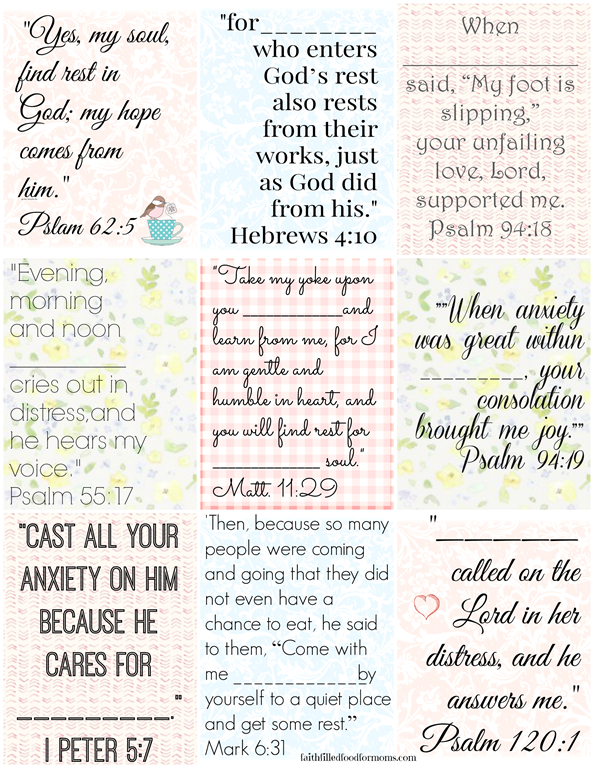 "Yes, my soul,
find rest in
God; my hope
comes from
him."
Pslam 62:5
"for_________
who enters
God's rest
also rests
from their
works, just
as God did
from his."
Hebrews 4:10
When
____________________
said, “My foot is
slipping,”
your unfailing
love, Lord,
supported me.
Psalm 94:18
"Evening,
morning
and noon
____________
cries out in
distress,and
he hears my
voice."
Psalm 55:17
"Take my yoke upon
you ____________and
learn from me, for I
am gentle and
humble in heart, and
you will find rest for
_____________ soul."
Matt. 11:29
""When anxiety
was great within
_________, your
consolation
brought me joy.""
Psalm 94:19
"CAST ALL YOUR
ANXIETY ON HIM
BECAUSE HE
CARES FOR
__________."
I PETER 5:7
'Then, because so many
people were coming
and going that they did
not even have a
chance to eat, he said
to them, “Come with
me ____________by
yourself to a quiet place
and get some rest.”
Mark 6:31
"__________
called on the
Lord in her
distress, and he
answers me."
Psalm 120:1
faithfilledfoodformoms.com